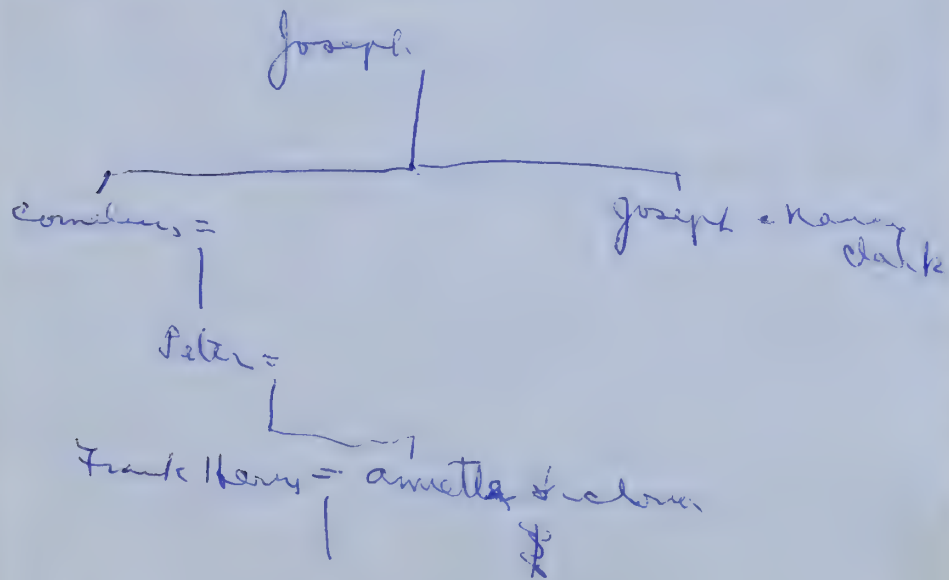 Joseph
Cornelius =
Joseph = Nancy
Clark
Peter =
Frank Harry = Annette